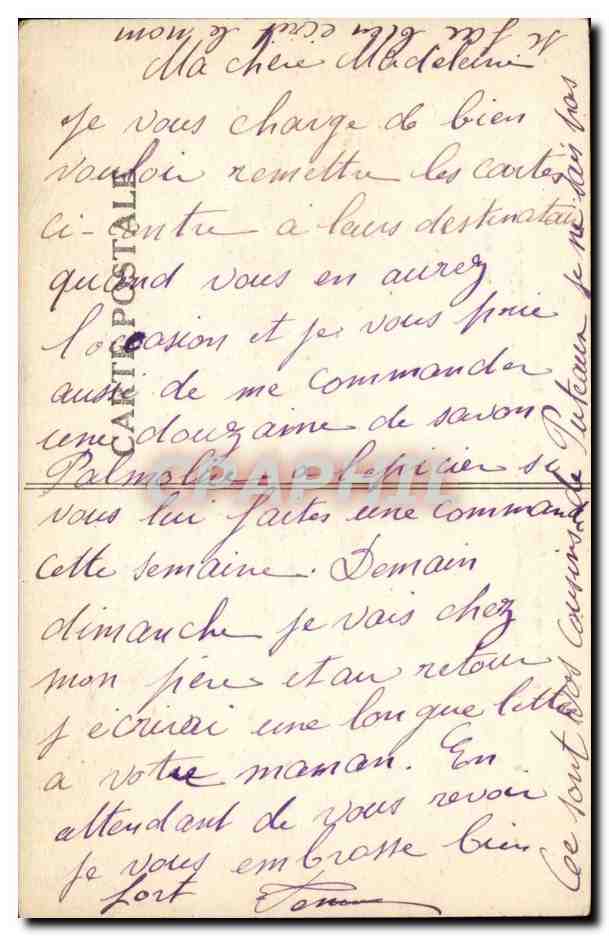 Ma chère Madeleine
Je vous charge de bien
vouloir remettre les cartes
ci-contre à leurs destinatair
quand vous en aurez
l'occasion et je vous prie
aussi de me commander
une douzaine de savon
Palmolive à l'épicier si
vous lui faites une command
cette semaine. Demain
dimanche je vais chez
mon père et au retour
j'écrirai une longue lettre
à votre maman. En
attendant de vous revoir
je vous embrasse bien
fort
(ce sont vos cousins de Puteaux je ne sais pas
si j'ai bien écrit le nom
CARTE POSTALE
CPAPHIL